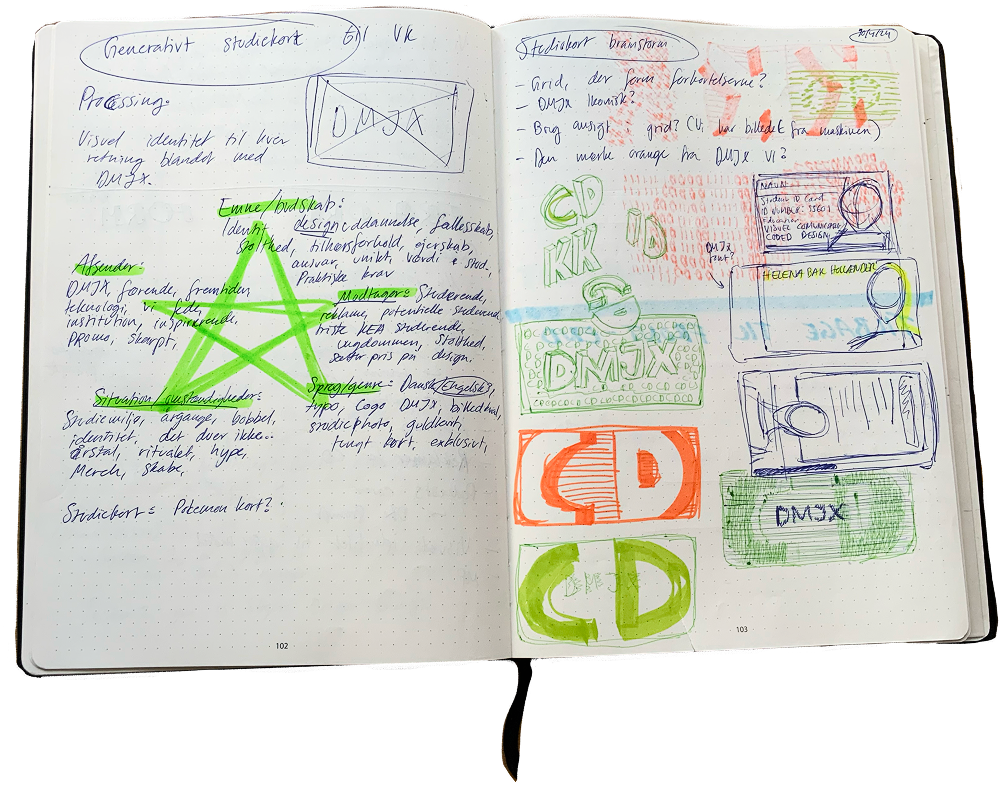 Generativt studiekort til VK
Processing:
DMJX
Visuel identitet til hver
retning blandet med
DMJX.
Emne/budskab:
Identi design uddannelse, fællesskab,
Stolthed, tilhørsforhold, ejerskab,
ansvar, unikt, værdi + stud.
Praktiske krav
Afsender:
DMJX, førende, fremtiden,
teknologi, vi fede,
institution, inspirerende,
promo, skarpt,
Modtager: Studerende,
reklame, potentielle studerende
triste KEA studerende,
ungdommen, Stolthed,
sætter pris på design.
Situation/omstændigheder:
Studiemiljø, årgange, bobbel,
identitet, det duer ikke...
årstal, ritualet, hype,
Merch, skabe,
Sprog/genre: Dansk/Engelsk?,
typo, Logo DMJX, billedkval,
studiephoto, guldkant,
tungt kort, exclusivt,
Studiekort = Pokemon kort?
102
Studiekort brainstorm
30/4/24
- Grid, der form forkortelserne?
- DMJX Ikonisk?
- Brug ansigt grid? (Vi har billedet fra maskinen)
- Den mørke orange fra DMJX VI?
CD
CD
KK
ID
NAVN
Student ID Card
ID NUMBER: 15601
Education
VISUEL COMUNICATION
CODED DESIGN
DMJX
font?
HELENA BAK HOLLENDER
CD
DMJX
CD
DMJX
DMJX
CD
103